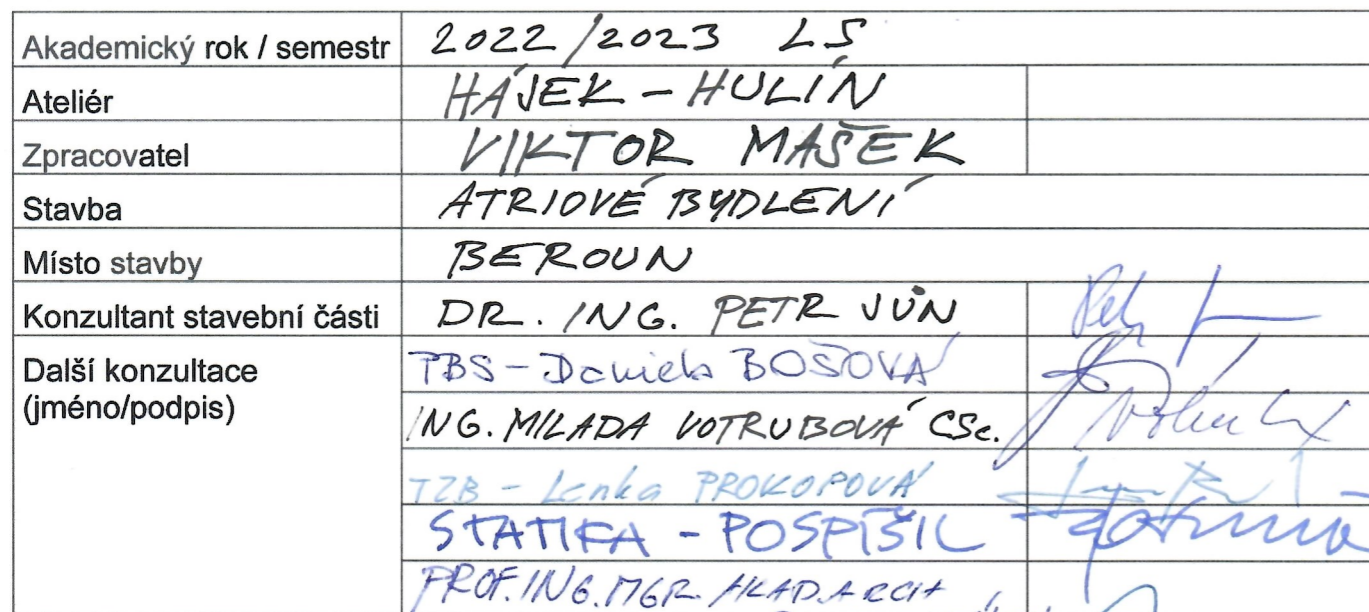 Akademický rok / semestr 2022/2023 LS
Ateliér HÁJEK - HULÍN
Zpracovatel VIKTOR MAŠEK
Stavba ATRIOVÉ BYDLENÍ
Místo stavby BEROUN
Konzultant stavební části DR. ING. PETR JŮN
Další konzultace PBS - Daniela BOŠOVÁ
(jméno/podpis) ING. MILADA VOTRUBOVÁ CSc.
TZB - Lenka PROKOPOVÁ
STATIKA - POSPÍŠIL
PROF. ING. MGR. AKAD. ARCH